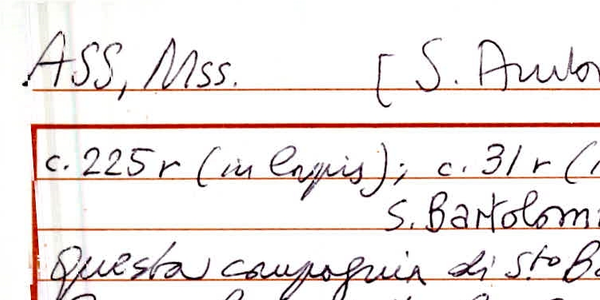 ASS, Mss. [ S. Ambro
c. 225 r (in lapis); c. 31 r (
S. Bartolom
Questa compagnia di Sto Ba